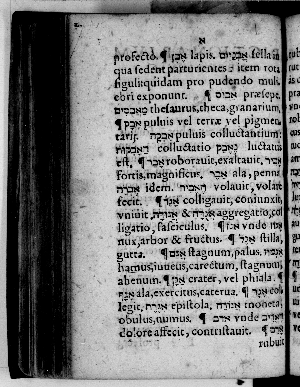 א
profecto. ¶ אבן lapis. אבנים sella in
qua sedent parturientes: item rota
figuli: quidam pro pudendo muli
ebri exponunt. ¶ אבוס præsepe.
מאבוסים thesaurus, theca, granarium,
¶ אבק puluis vel terræ vel pigmen
tarij. אבקה puluis colluctantium:
האבקות colluctatio נאבק luctatus
est. ¶ אבר roborauit, exaltauit, אביר
fortis, magnificus. אבר ala, penna
אברה idem. האביר volauit, volare
fecit. ¶ אגד colligauit, coniunxit,
vniuit, אגדה & אגודה, aggregatio, col
ligatio, fasciculus. ¶ אגוז vnde
nux, arbor & fructus. ¶ אגל stilla,
gutta. ¶ אגם stagnum, palus.
hamus, iuncus, carectum, stagnum,
ahenum. ¶ אגן crater, vel phiala. ¶
ala, exercitus, caterua. ¶ אגר col
legit, אגרת epistola, אגורה moneta,
obulus, numus. ¶ אדם vnde
dolore affecit, contristauit. ¶ אדם
rubuit